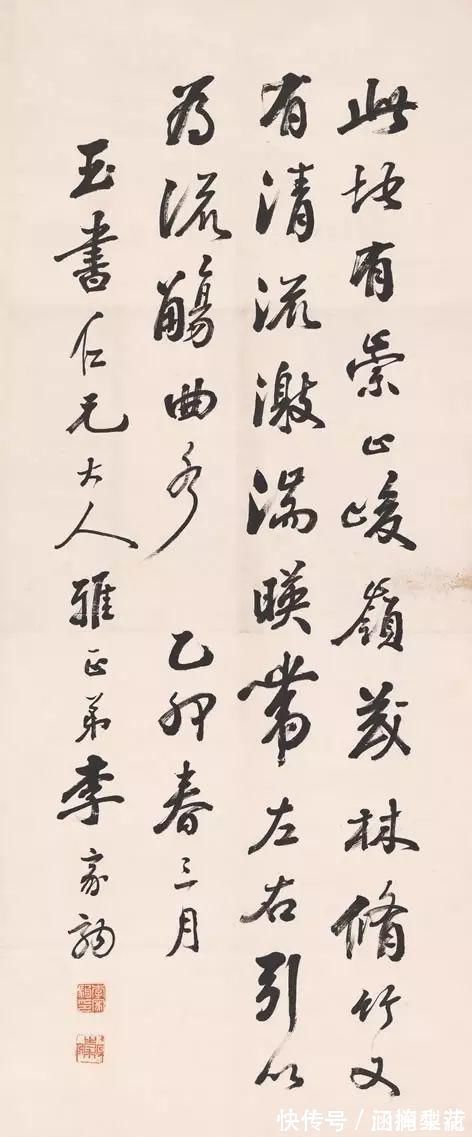 此地有崇山峻嶺茂林脩竹又
有清流激湍暎帶左右引以
為流觴曲水 乙卯春三月
玉書仁兄大人雅正弟李家駒
快传号／